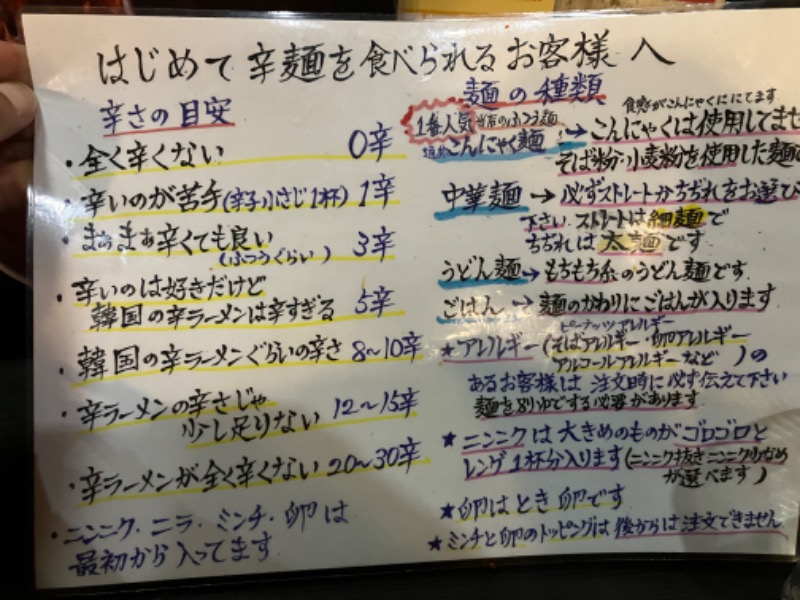 はじめて辛麺を食べられるお客様へ
辛さの目安
・全く辛くない 0辛
・辛いのが苦手(辛子小さじ1杯) 1辛
・まぁまぁ辛くても良い 3辛
(ふつうぐらい)
・辛いのは好きだけど
韓国の辛ラーメンは辛すぎる 5辛
・韓国の辛ラーメンぐらいの辛さ 8〜10辛
・辛ラーメンの辛さじゃ
少し足りない 12〜15辛
・辛ラーメンが全く辛くない 20〜30辛
・ニンニク・ニラ・ミンチ・卵は
最初から入ってます
麺の種類
食感がこんにゃくににてます
1番人気 当店のふつう麺
こんにゃく麺 → こんにゃくは使用してませ
そば粉・小麦粉を使用した麺
中華麺 → 必ずストレートかちぢれをお選び
下さい.ストレートは細麺で
ちぢれは太麺です
うどん麺 → もちもち系のうどん麺です
ごはん → 麺のかわりにごはんが入ります
ピーナッツアレルギー
★アレルギー(そばアレルギー・卵アレルギー
アルコールアレルギーなど)の
あるお客様は注文時に必ず伝えて下さい
麺を別ゆでする必要があります
★ニンニクは大きめのものがゴロゴロと
レンゲ1杯分入ります(ニンニク抜きニンニク少なめ
が選べます)
★卵はとき卵です
★ミンチと卵のトッピングは後からは注文できません